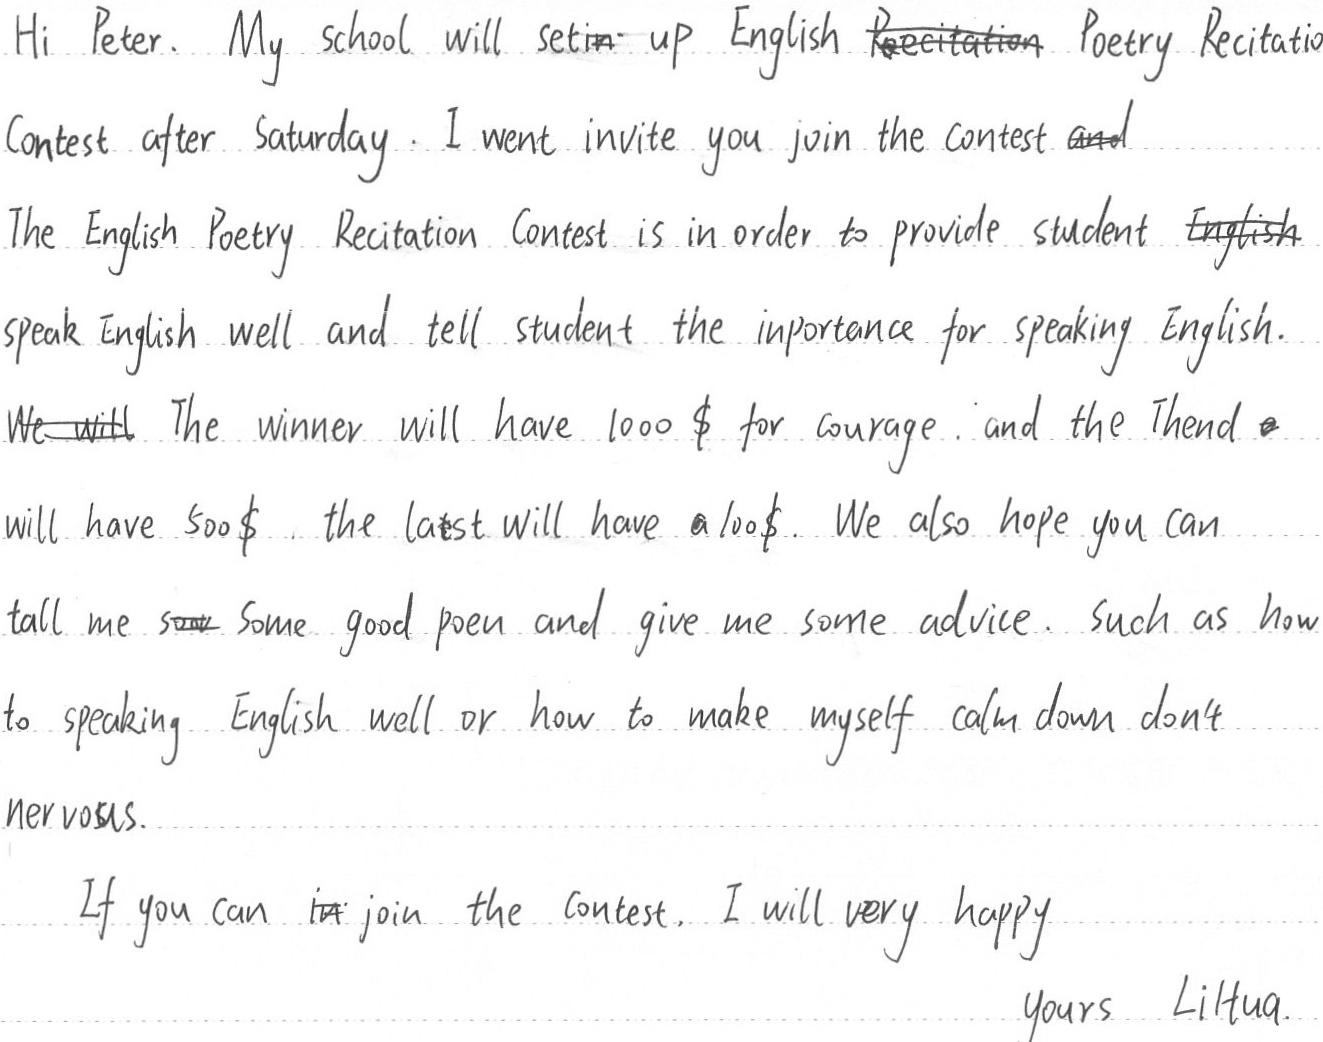 Hi Peter. My school will set up English Poetry Recitatio
Contest after Saturday. I went invite you join the contest
The English Poetry Recitation Contest is in order to provide student
speak English well and tell student the inportance for speaking English.
The winner will have 1000 $ for courage. and the Thend
will have 500$. the latst will have a 100$. We also hope you can
tall me some good poen and give me some advice. Such as how
to speaking English well or how to make myself calm down don't
nervous.
If you can join the contest. I will very happy
yours LiHua.